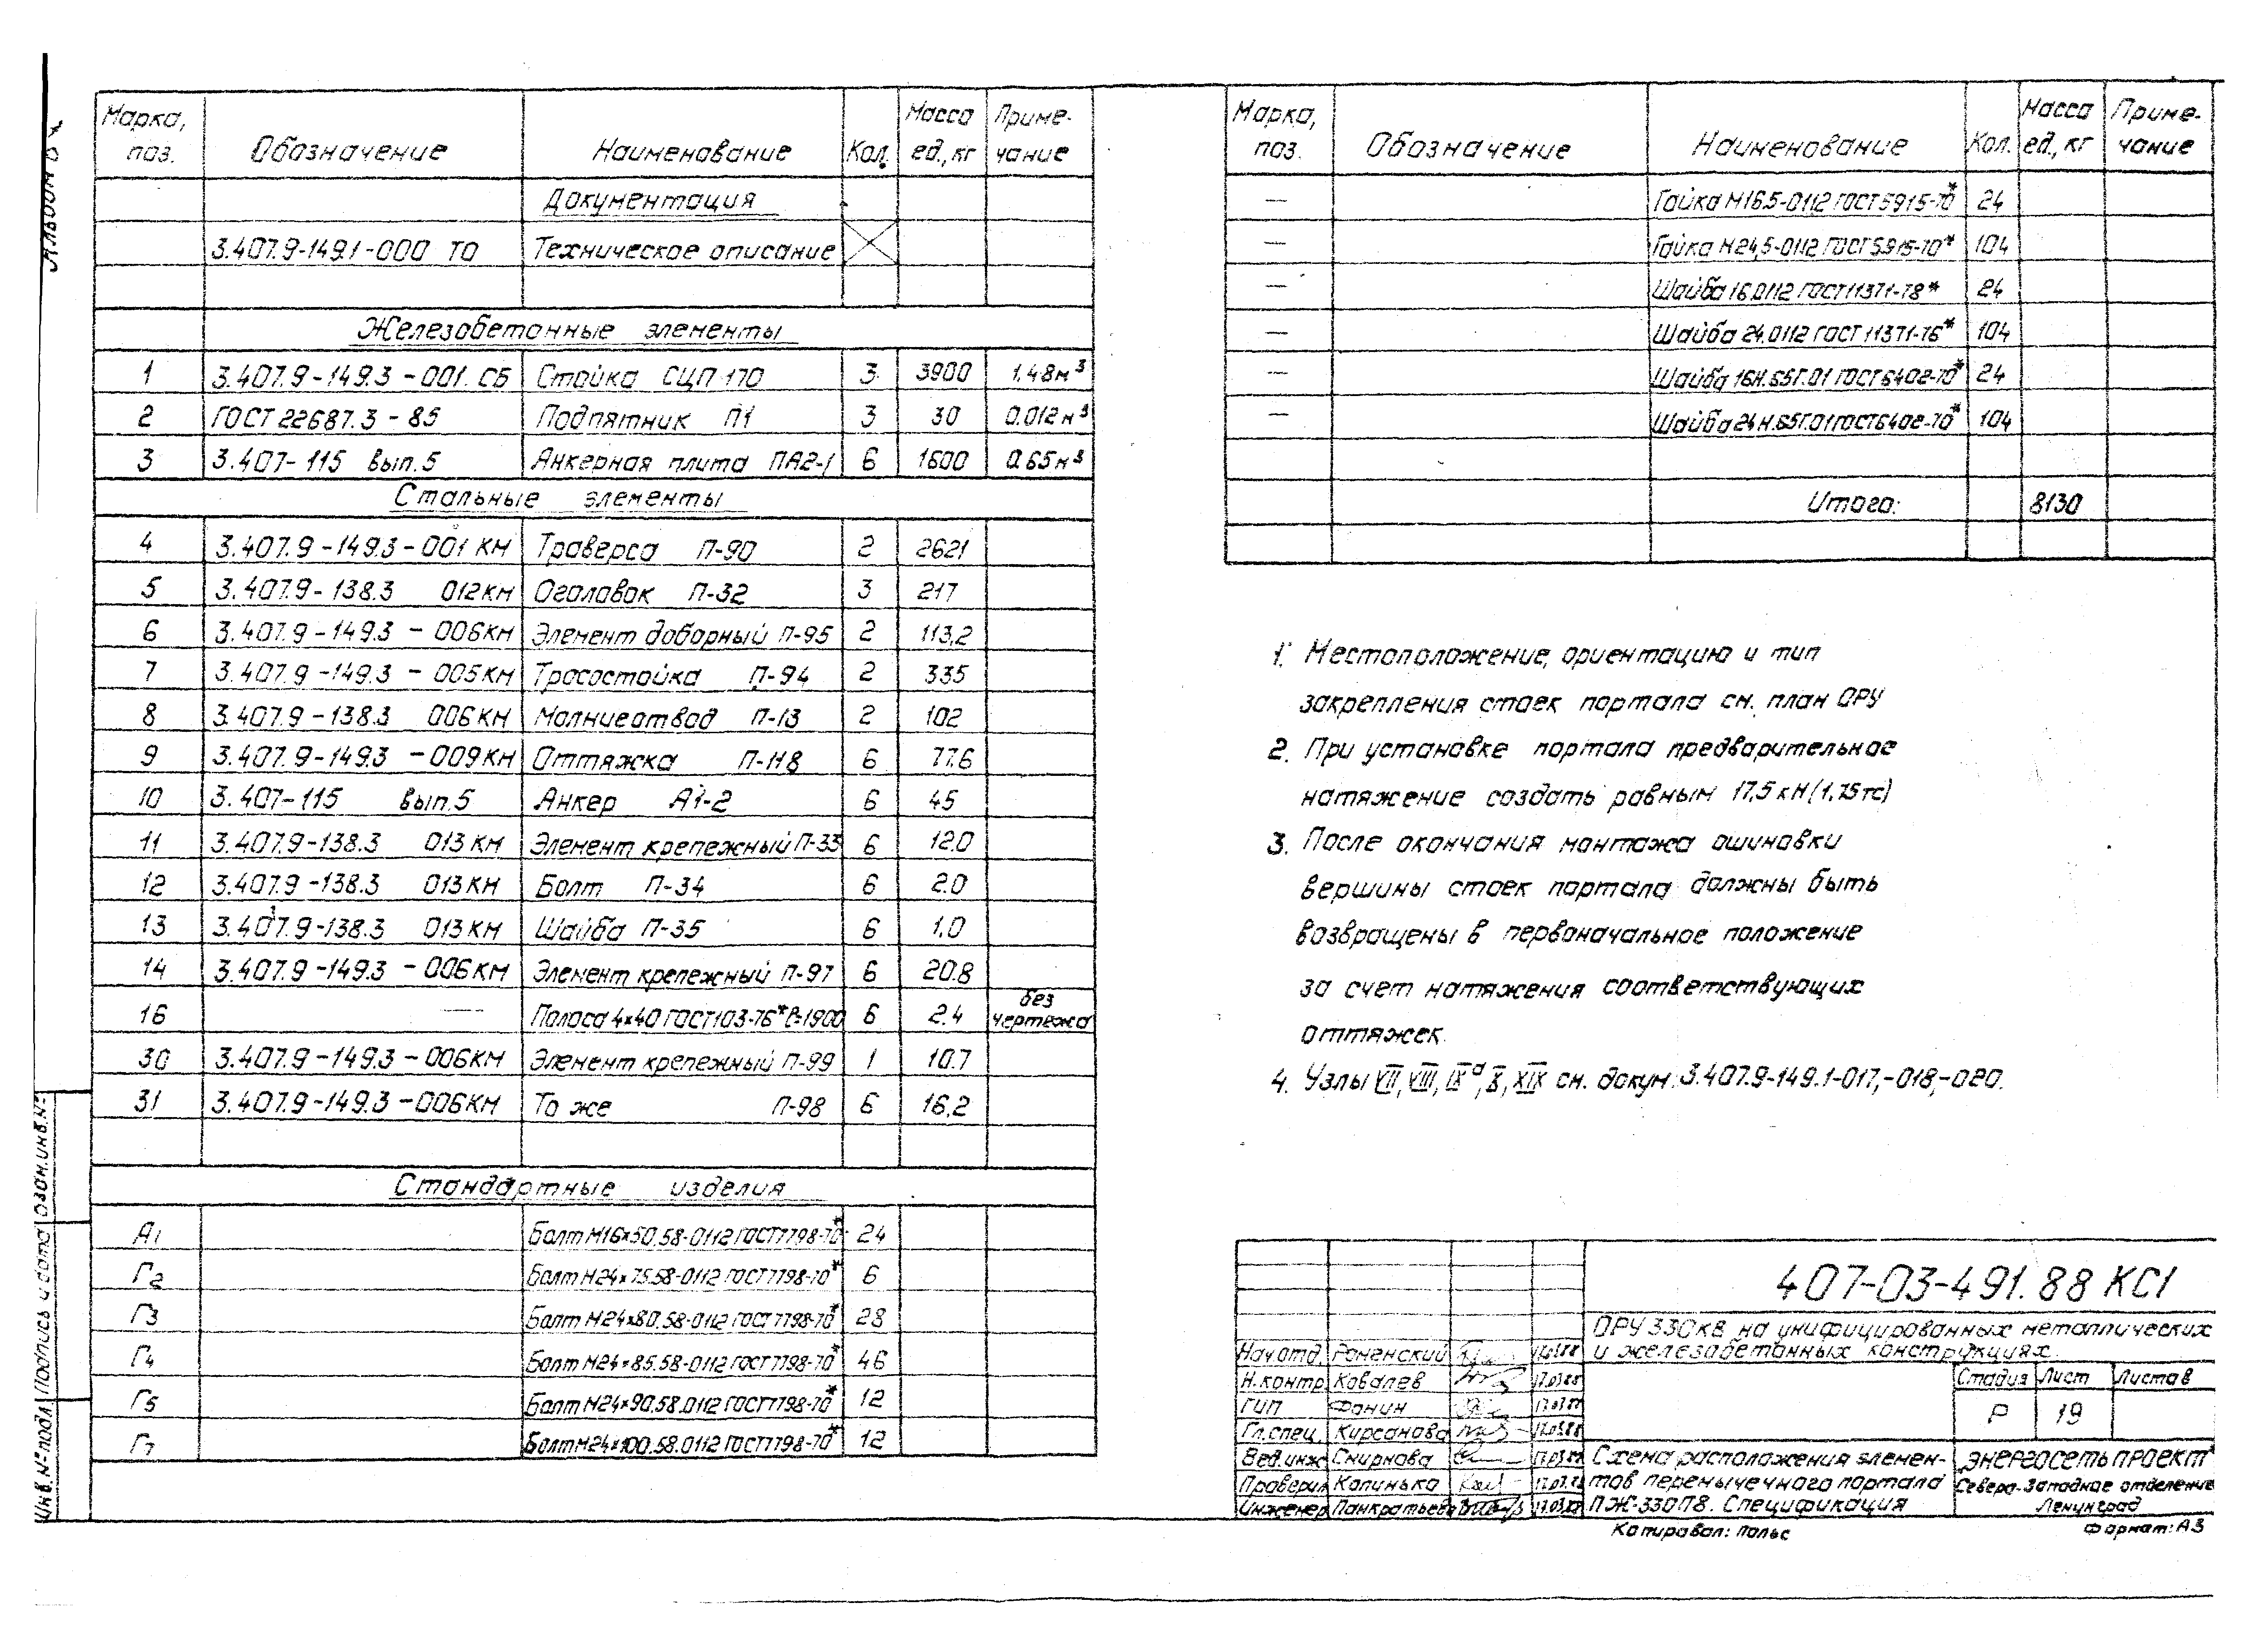 Альбом
Марка, поз. Обозначение Наименование Кол. Масса ед., кг Примечание
Документация
3.407.9-149.1-000 ТО Техническое описание
Железобетонные элементы
1 3.407.9-149.3-001.СБ Стойка СЦП-170 3 3900 1.48м³
2 ГОСТ 22687.3-85 Подпятник П1 3 30 0.012м³
3 3.407-115 вып.5 Анкерная плита ПА2-1 6 1600 0.65м³
Стальные элементы
4 3.407.9-149.3-001 КМ Траверса П-90 2 2621
5 3.407.9-138.3 012КМ Оголовок П-32 3 217
6 3.407.9-149.3-006КМ Элемент доборный П-95 2 113,2
7 3.407.9-149.3-005КМ Тросостойка П-94 2 335
8 3.407.9-138.3 006КМ Молниеотвод П-13 2 102
9 3.407.9-149.3-009КМ Оттяжка П-118 6 77.6
10 3.407-115 вып.5 Анкер А1-2 6 45
11 3.407.9-138.3 013КМ Элемент крепежный П-33 6 12.0
12 3.407.9-138.3 013КМ Болт П-34 6 2.0
13 3.407.9-138.3 013КМ Шайба П-35 6 1,0
14 3.407.9-149.3-006КМ Элемент крепежный П-97 6 20.8
16 — Полоса 4×40 ГОСТ103-76* ℓ=1900 6 2.4 без чертежа
30 3.407.9-149.3-006КМ Элемент крепежный П-99 1 10.7
31 3.407.9-149.3-006КМ То же П-98 6 16,2
Стандартные изделия
А1 Болт М16×50.58-0112 ГОСТ7798-70* 24
Г2 Болт М24×75.58-0112 ГОСТ7798-70* 6
Г3 Болт М24×80.58-0112 ГОСТ7798-70* 28
Г4 Болт М24×85.58-0112 ГОСТ7798-70* 46
Г5 Болт М24×90.58.0112 ГОСТ7798-70* 12
Г7 Болт М24×100.58.0112 ГОСТ7798-70* 12
Инв.№ подл Подпись и дата Взам.инв.№
Марка, поз. Обозначение Наименование Кол. Масса ед., кг Примечание
— Гайка М16.5-0112 ГОСТ5915-70* 24
— Гайка М24,5-0112 ГОСТ5915-70* 104
— Шайба 16.0112 ГОСТ11371-78* 24
— Шайба 24.0112 ГОСТ 11371-76* 104
— Шайба 16Н.65Г.01 ГОСТ6402-70* 24
— Шайба 24Н.65Г.01 ГОСТ6402-70* 104
Итого: 8130
1. Местоположение, ориентацию и тип
закрепления стоек портала см. план ОРУ
2. При установке портала предварительное
натяжение создать равным 17,5 кН (1,75тс)
3. После окончания монтажа ошиновки
вершины стоек портала должны быть
возвращены в первоначальное положение
за счет натяжения соответствующих
оттяжек.
4. Узлы VII, VIII, IXа, X, XIX см. докум. 3.407.9-149.1-017,-018,-020.
407-03-491.88 КС1
ОРУ 330кВ на унифицированных металлических
и железобетонных конструкциях.
Нач отд. Роменский
Н.контр Ковалев
ГИП Фомин
Гл.спец. Кирсанова
Вед.инж Смирнова
Проверил Калинько
Инженер Панкратьева
Стадия Лист Листов
Р 19
Схема расположения элемен-
тов перемычечного портала
ПЖ-330П8. Спецификация
Энергосетьпроект
Северо-Западное отделение
Ленинград
Копировал: Польс Формат: А3